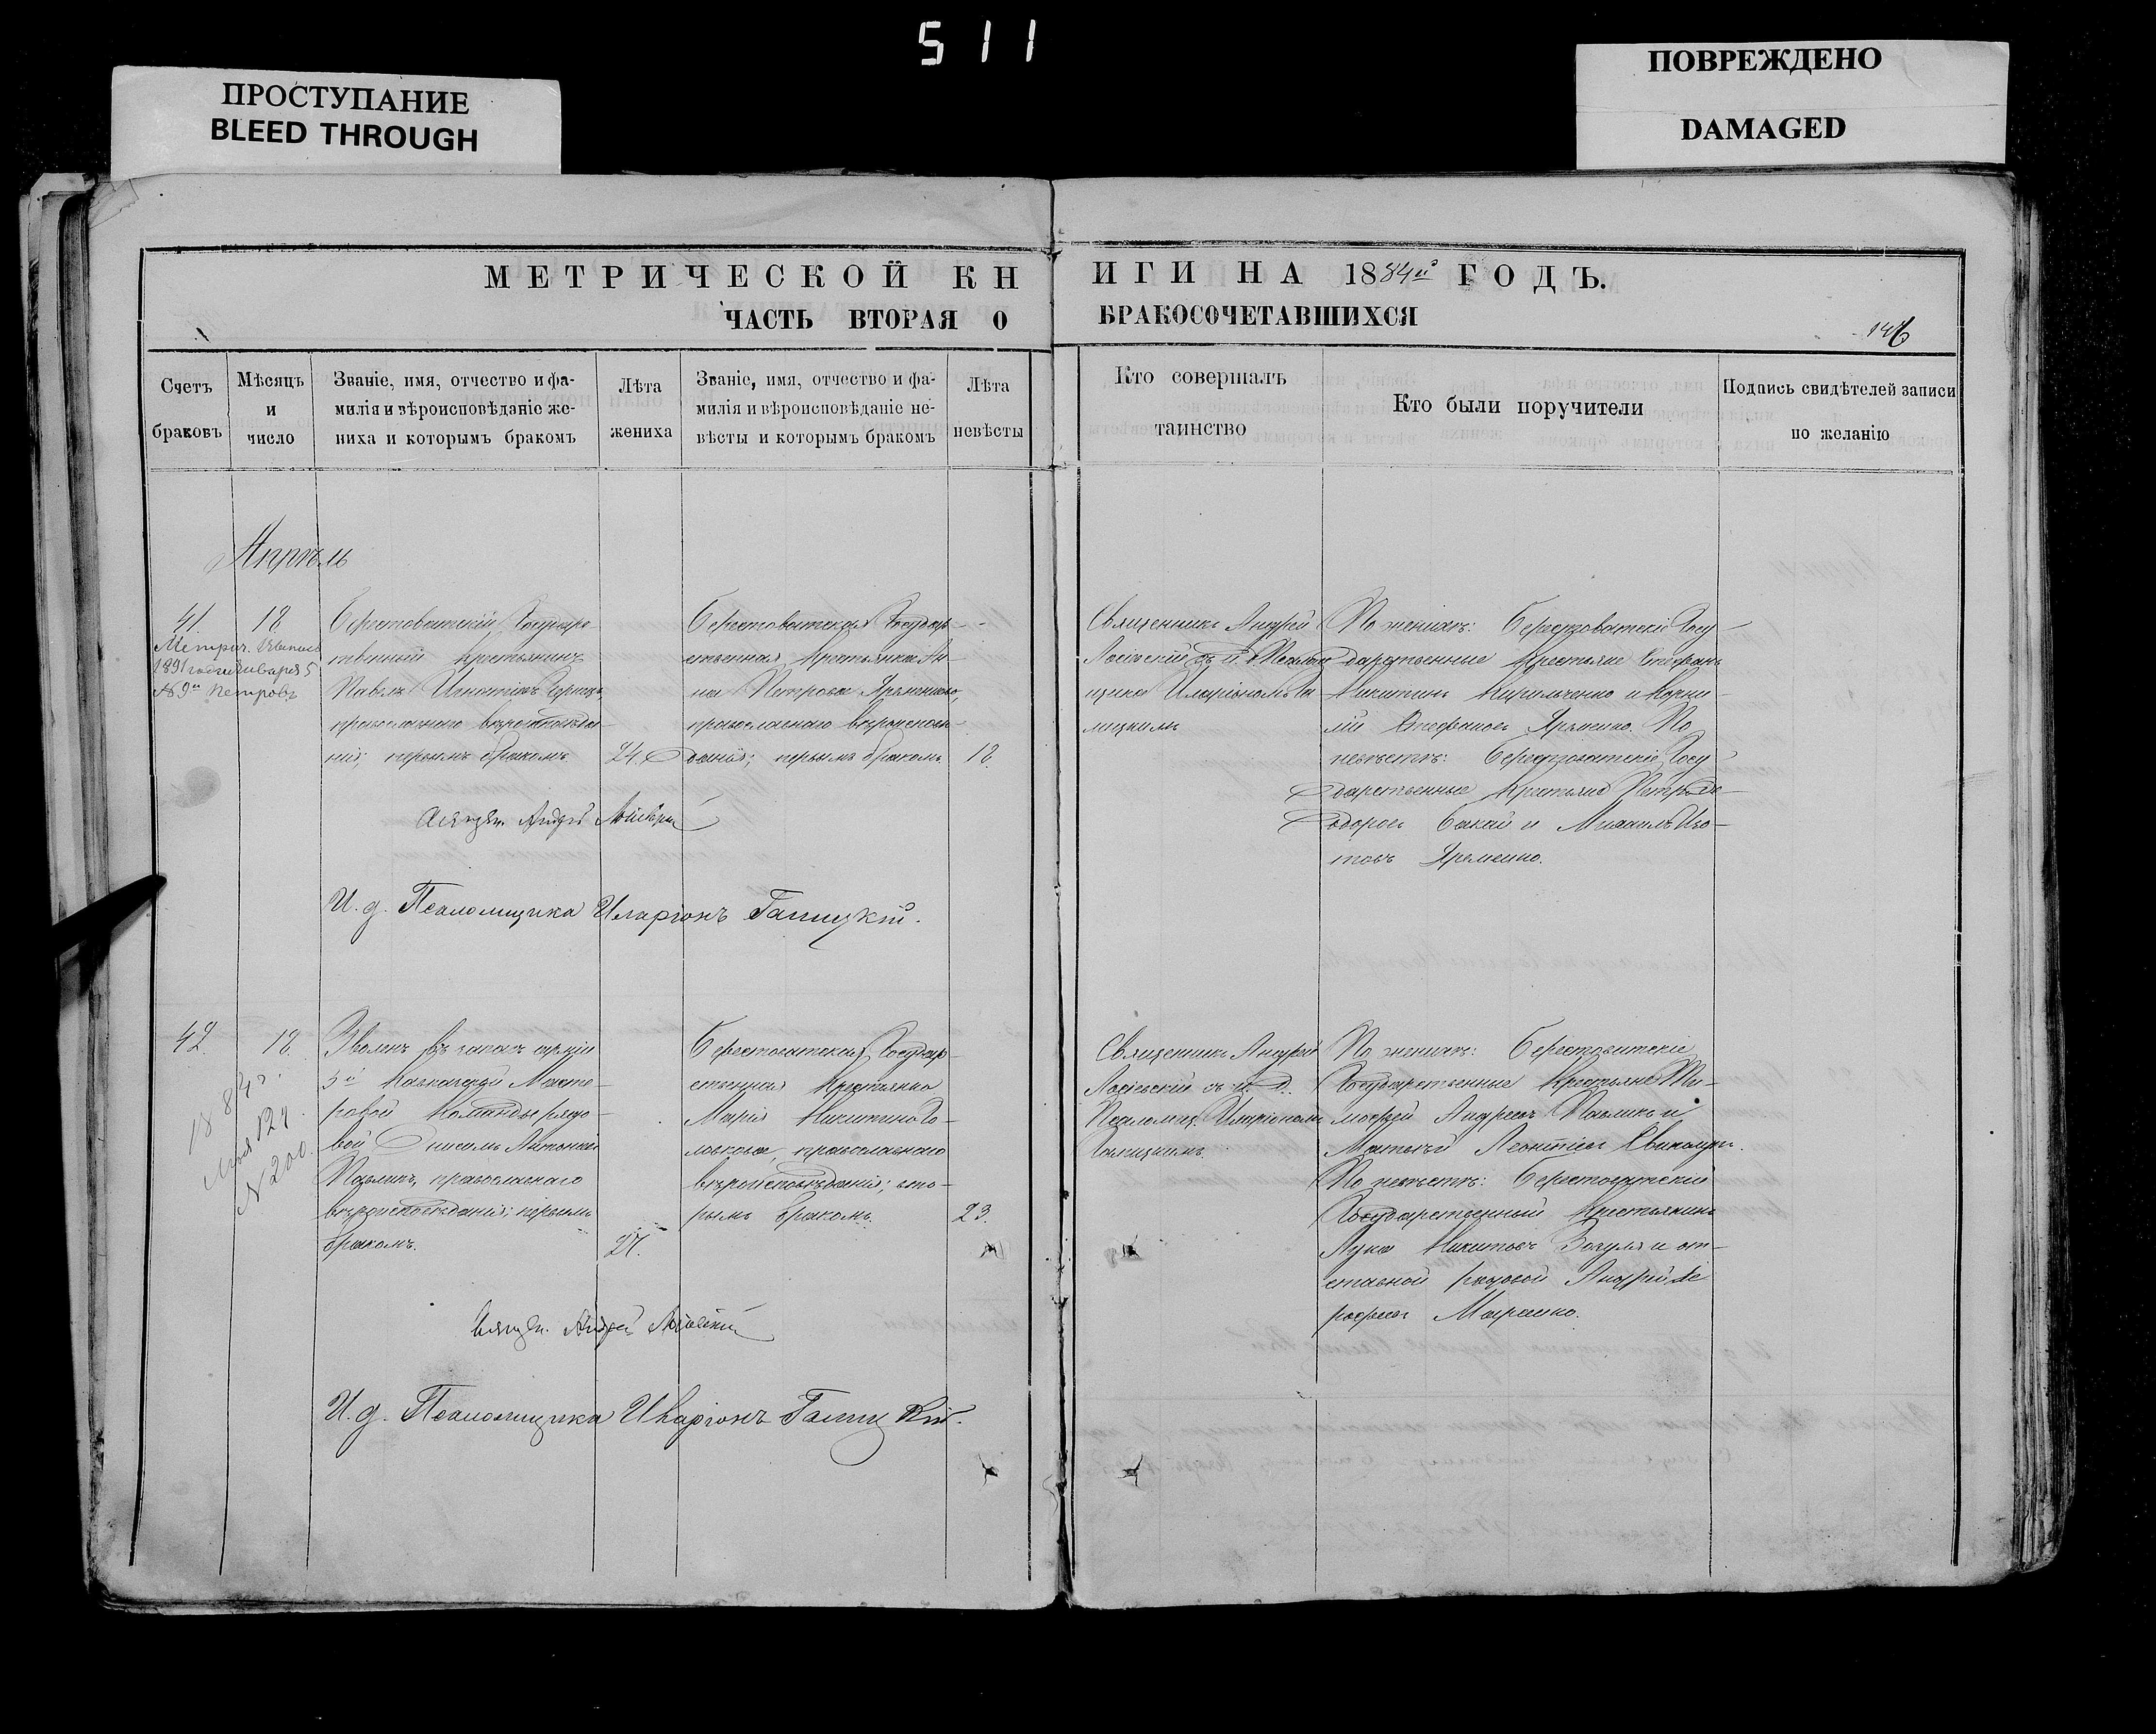 511
ПРОСТУПАНИЕ
BLEED THROUGH
ПОВРЕЖДЕНО
DAMAGED
МЕТРИЧЕСКОЙ КНИГИ НА 1884й ГОДЪ.
ЧАСТЬ ВТОРАЯ О БРАКОСОЧЕТАВШИХСЯ
146
Счетъ
браковъ
Мѣсяцъ
и
число
Званіе, имя, отчество и фа-
милія и вѣроисповѣданіе же-
ниха и которымъ бракомъ
Лѣта
жениха
Званіе, имя, отчество и фа-
милія и вѣроисповѣданіе не-
вѣсты и которымъ бракомъ
Лѣта
невѣсты
Кто совершалъ
таинство
Кто были поручители
Подпись свидѣтелей записи
по желанію
Апрѣль
41
18
Метрич.
1891 года Января 5
№ 9й Петровъ
Берестоватскій Государ-
твенный Крестьянинъ
Павелъ Игнатіевъ
православнаго вѣроисповѣда-
нія; первымъ бракомъ.
24.
Берестоватская Государ-
ственная Крестьянка Ан-
на Петрова Яременкова,
православнаго вѣроисповѣ-
данія; первымъ бракомъ.
18.
Священникъ Андрей
Лосіевскій съ и. д. Псаломщика
щика Иларіономъ Га-
лицкимъ
По женихѣ: Берестоватскіе Госу-
дарственные Крестьяне Стефанъ
Никитинъ Кирильченко и Корни-
лій Стефановъ Яременко. По
невѣстѣ: Берестоватскіе Госу-
дарственные Крестьяне Петръ Ѳе-
одоровъ Бакай и Михаилъ Изо-
товъ Яременко.
Священ. Андрей Лосіевскій
И. д. Псаломщика Иларіонъ Галицкій.
42.
18.
1884 г.
№ 200.
Уволенъ въ запасъ арміи
5й Мясте-
ровой Команды рядо-
вой Антоніевъ
Павликъ, православнаго
вѣроисповѣданія; первымъ
бракомъ.
27.
Берестоватская Государ-
ственная Крестьянка
Марія Никитина Го-
ловкова, православнаго
вѣроисповѣданія; вто-
рымъ бракомъ.
23.
Священникъ Андрей
Лосіевскій съ и. д.
Псаломщ. Иларіономъ
Галицкимъ.
По женихѣ: Берестоватскіе
Государственные Крестьяне Ти-
мофей Андреевъ Павликъ и
Матвѣй Леонтіевъ
По невѣстѣ: Берестоватскій
Государственный Крестьянинъ
Лука Никитовъ Зозуля и от-
ставной рядовой Андрей
Марченко.
Священ. Андрей Лосіевскій
И. д. Псаломщика Иларіонъ Галицкій.